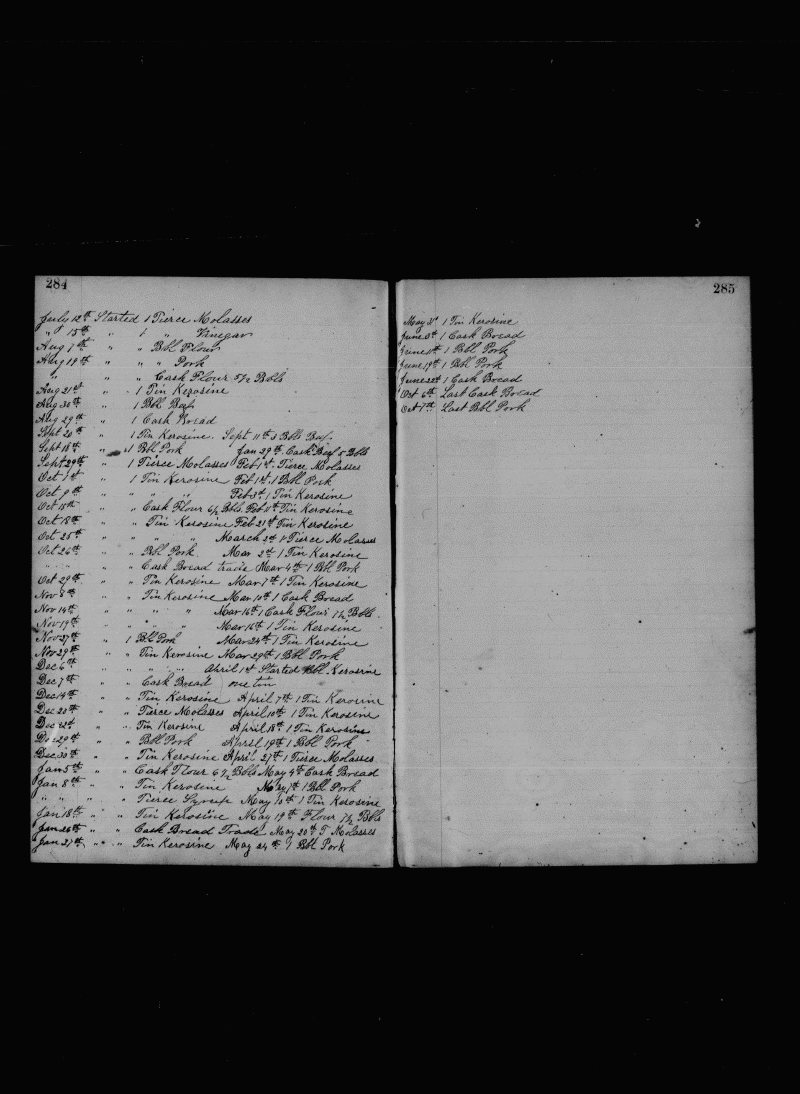 284
July 12th Started 1 Tierce Molasses
" " 15th " 1 " Vinegar
Aug 7th " " Bbl Flour
Aug 19th " " " Pork
" " " Cask Flour 5 1/2 Bbls
Aug 21st " 1 Tin Kerosine
Aug 30th " 1 Bbl Beef
Aug 29th " 1 Cask Bread
Sept 20th " 1 Tin Kerosine. Sept 11th 3 Bbls Beef
Sept 18th " 1 Bbl Pork Jan 29th Cask Beef 5 Bbls
Sept 29th " 1 Tierce Molasses Feb 1st Tierce Molasses
Oct 1st " 1 Tin Kerosine Feb 1st 1 Bbl Pork
Oct 9th " " " " Feb 3d 1 Tin Kerosine
Oct 15th " " Cask Flour 6 1/2 Bbls. Feb 11th Tin Kerosine
Oct 18th " " Tin Kerosine Feb 21st Tin Kerosine
Oct 25th " " " " March 2d 1 Tierce Molasses
Oct 26th " " Bbl Pork. Mar 2d 1 Tin Kerosine
" " " " Cask Bread trade Mar 4th 1 Bbl Pork
Oct 29th " " Tin Kerosine Mar 7th 1 Tin Kerosine
Nov 8th " " Tin Kerosine Mar 10th 1 Cask Bread
Nov 14th " " " " Mar 16th 1 Cask Flour 7 1/2 Bbls
Nov 19th " " " " Mar 16th 1 Tin Kerosine
Nov 27th " 1 Bbl Pork Mar 24th 1 Tin Kerosine
Nov 29th " " Tin Kerosine Mar 29th 1 Bbl Pork
Dec 6th " " " " April 1st Started Bbl Kerosine
Dec 7th " " Cask Bread one tin
Dec 14th " " Tin Kerosine April 7th 1 Tin Kerosine
Dec 20th " " Tierce Molasses April 10th 1 Tin Kerosine
Dec 22d " " Tin Kerosine April 18th 1 Tin Kerosine
Dec 29th " " Bbl Pork April 19th 1 Bbl Pork
Dec 30th " " Tin Kerosine April 27th 1 Tierce Molasses
Jan 5th " " Cask Flour 6 1/2 Bbls May 4th Cask Bread
Jan 8th " " Tin Kerosine May 7th 1 Bbl Pork
" " " " Tierce Syrup May 10th 1 Tin Kerosine
Jan 18th " " Tin Kerosine May 19th Flour 7 1/2 Bbls
Jan 26th " " Cask Bread Trade May 20th T Molasses
Jan 27th " " Tin Kerosine May 24th 1 Bbl Pork
285
May 31 1 Tin Kerosine
June 1 Cask Bread
June 11th 1 Bbl Pork
June 19th 1 Bbl Pork
June 22d 1 Cask Bread
Oct 6th Last Cask Bread
Oct 7th Last Bbl Pork